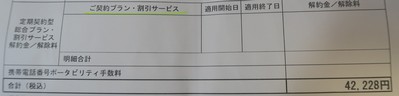 ご契約プラン・割引サービス 適用開始日 適用終了日 解約金／解除料
定期契約型
総合プラン・
割引サービス
解約金／解除料
明細合計
携帯電話番号ポータビリティ手数料
合計（税込） 42,228円